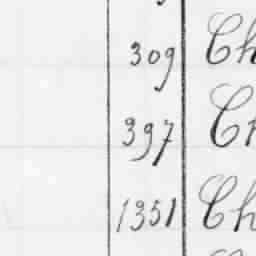 309 Ch
397 Cr
1351 Ch